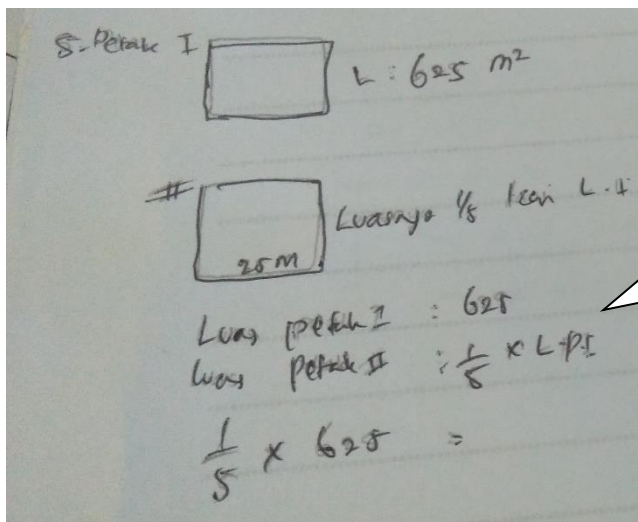 5. Petak I
L : 625 m²
II
Luasnya 1/5 kali L. I
25 M
Luas petak I : 625
Luas petak II : 1/5 x L.PI
1/5 x 625 =